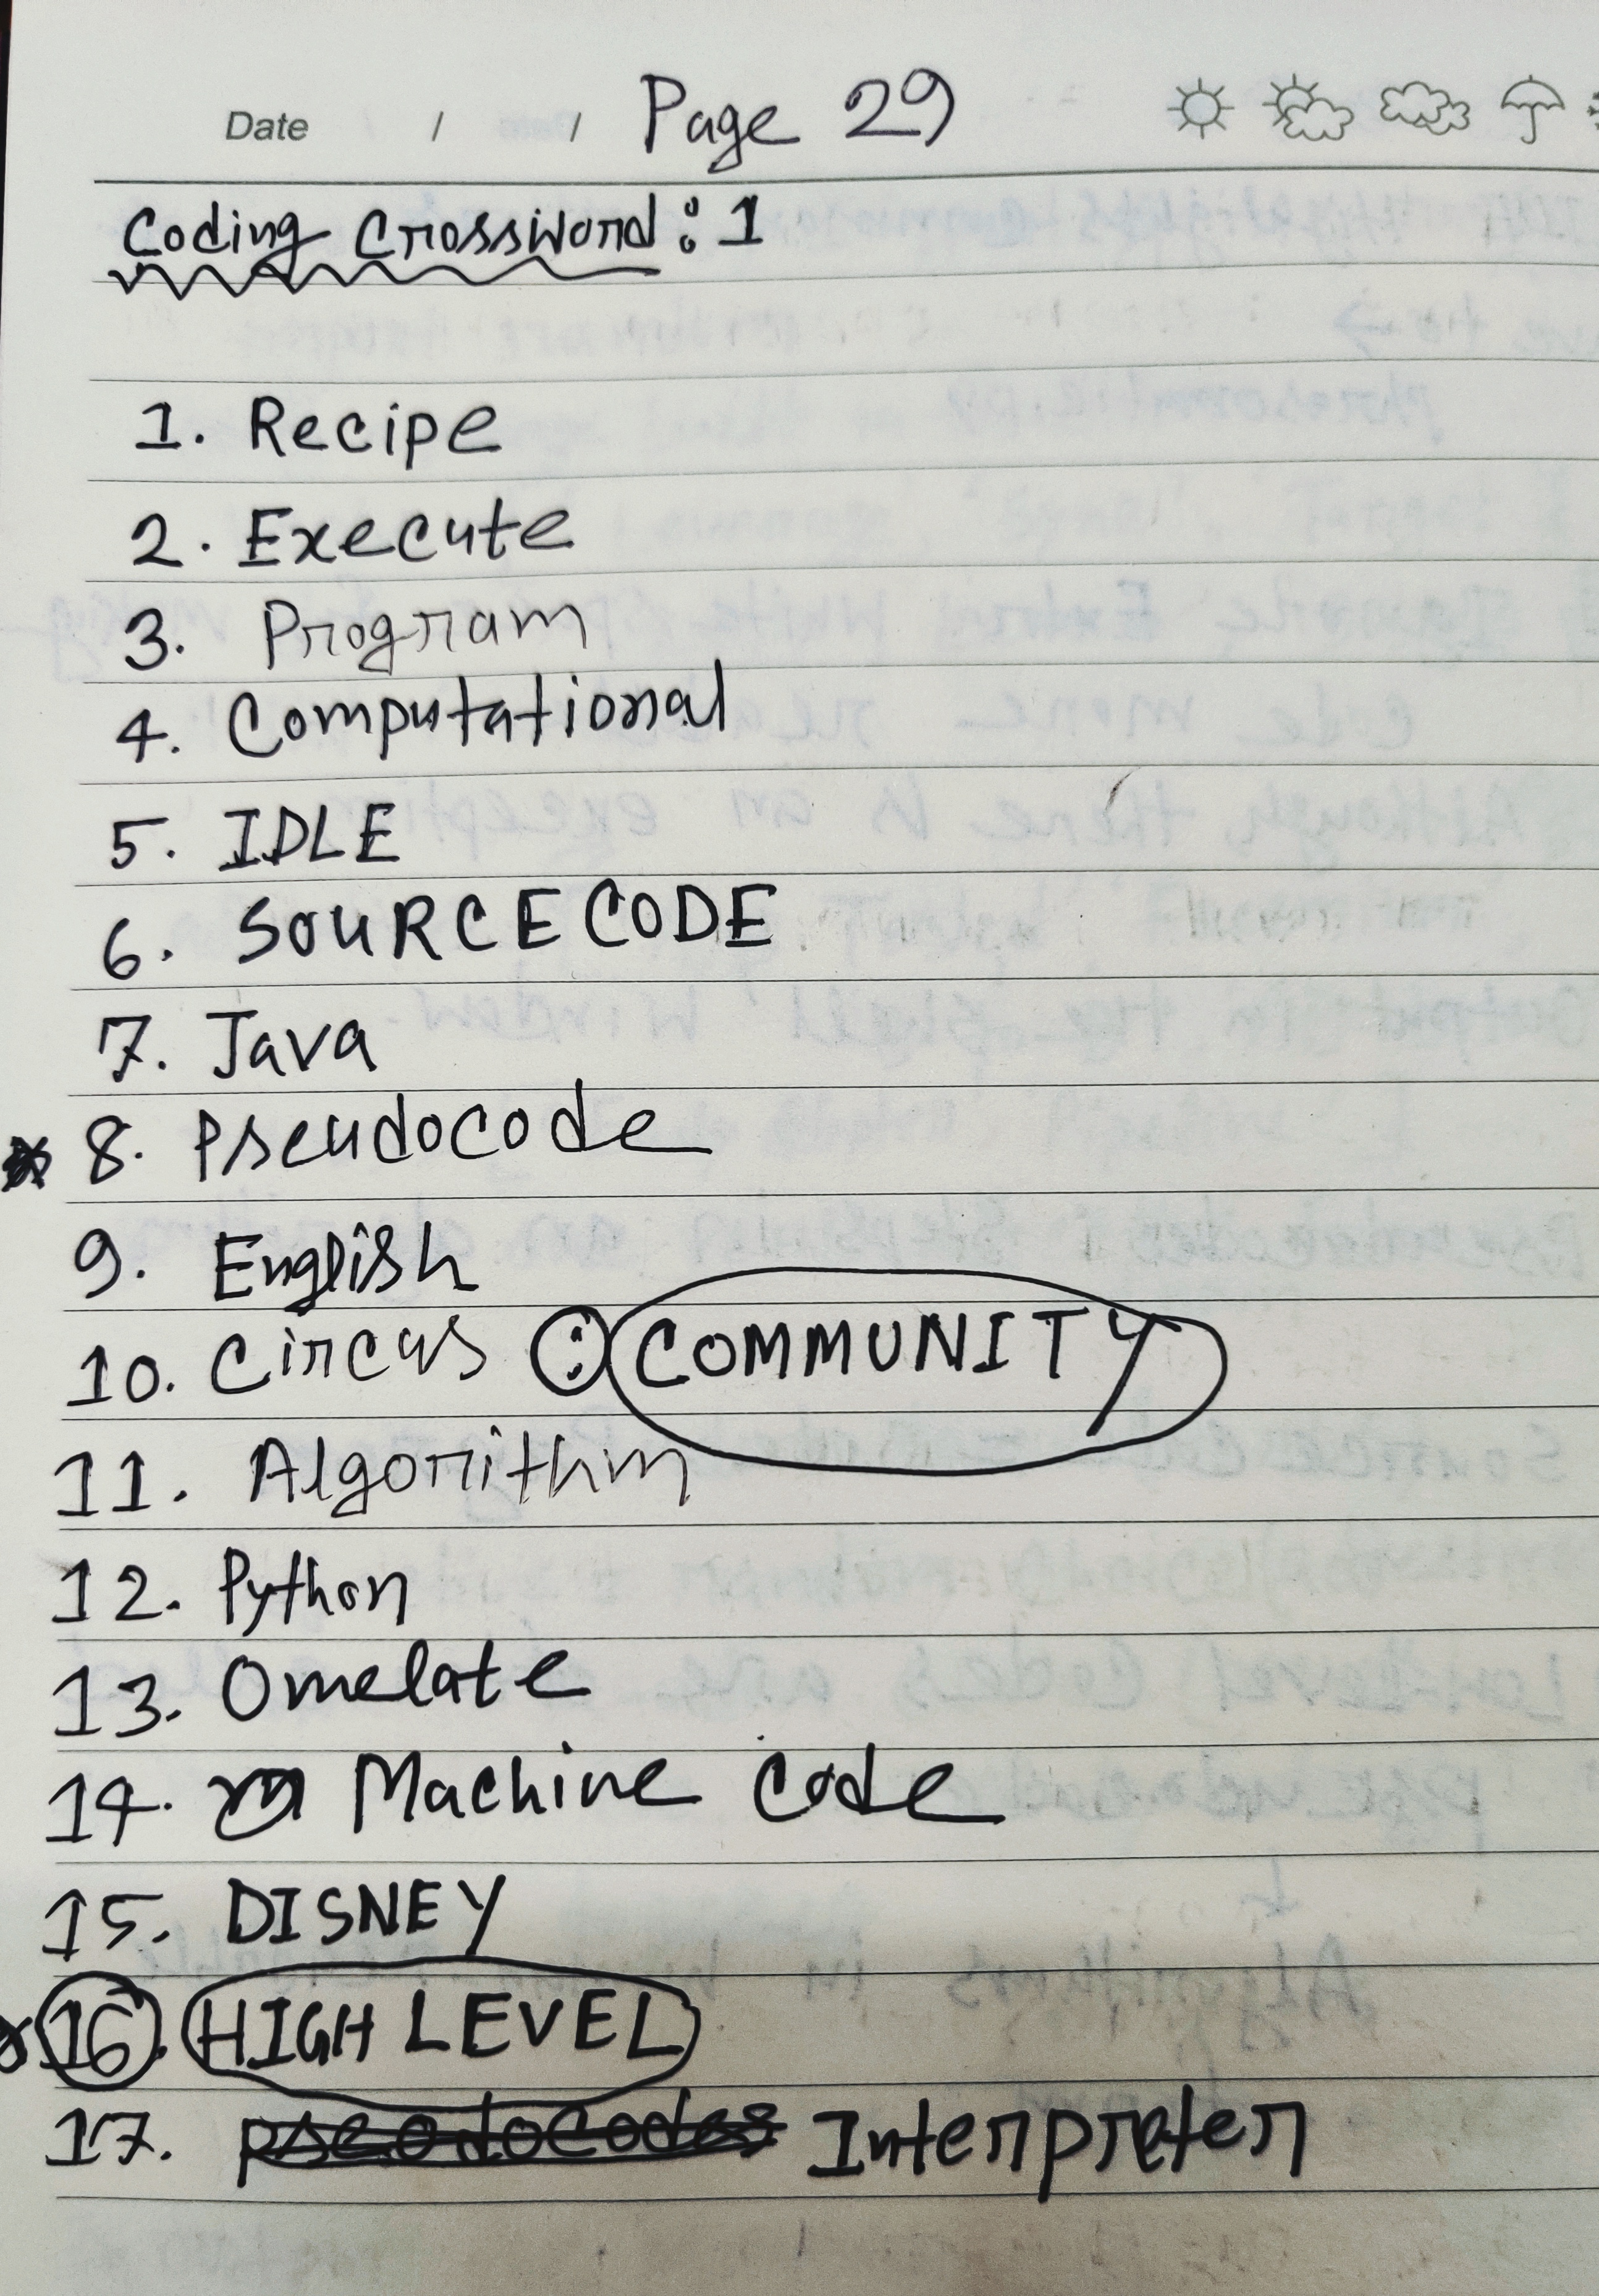 Date / / Page 29
Coding Crossword : 1
1. Recipe
2. Execute
3. Program
4. Computational
5. IDLE
6. SOURCE CODE
7. Java
8. Pseudocode
9. English
10. Circus : COMMUNITY
11. Algorithm
12. Python
13. Omelate
14. Machine Code
15. DISNEY
16. HIGH LEVEL
17. pseodocodes Interpreter